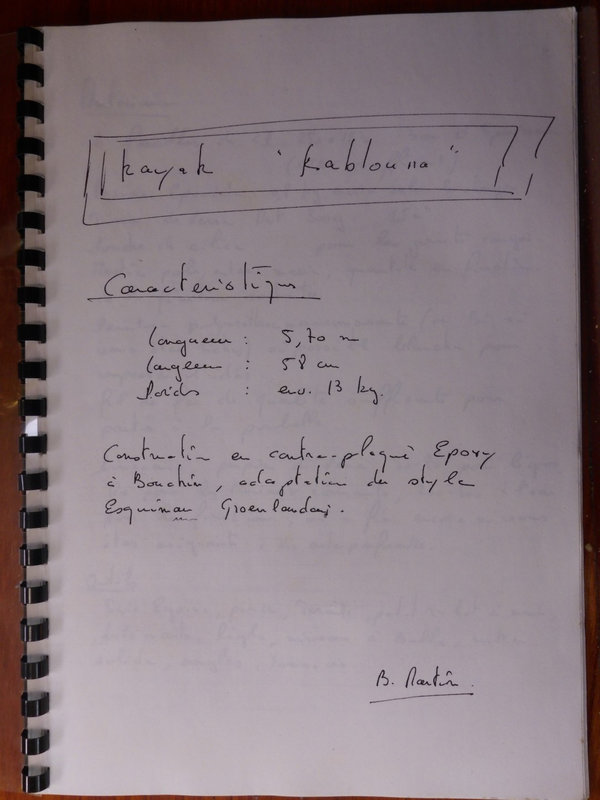 kayak "Kablouna"
Caractéristiques
longueur : 5,70 m
largeur : 58 cm
Poids : env. 13 kg.
Construction en contre-plaqué Epoxy
à Bouchin, adaptation du style
Esquimau Groenlandais.
B. Martin